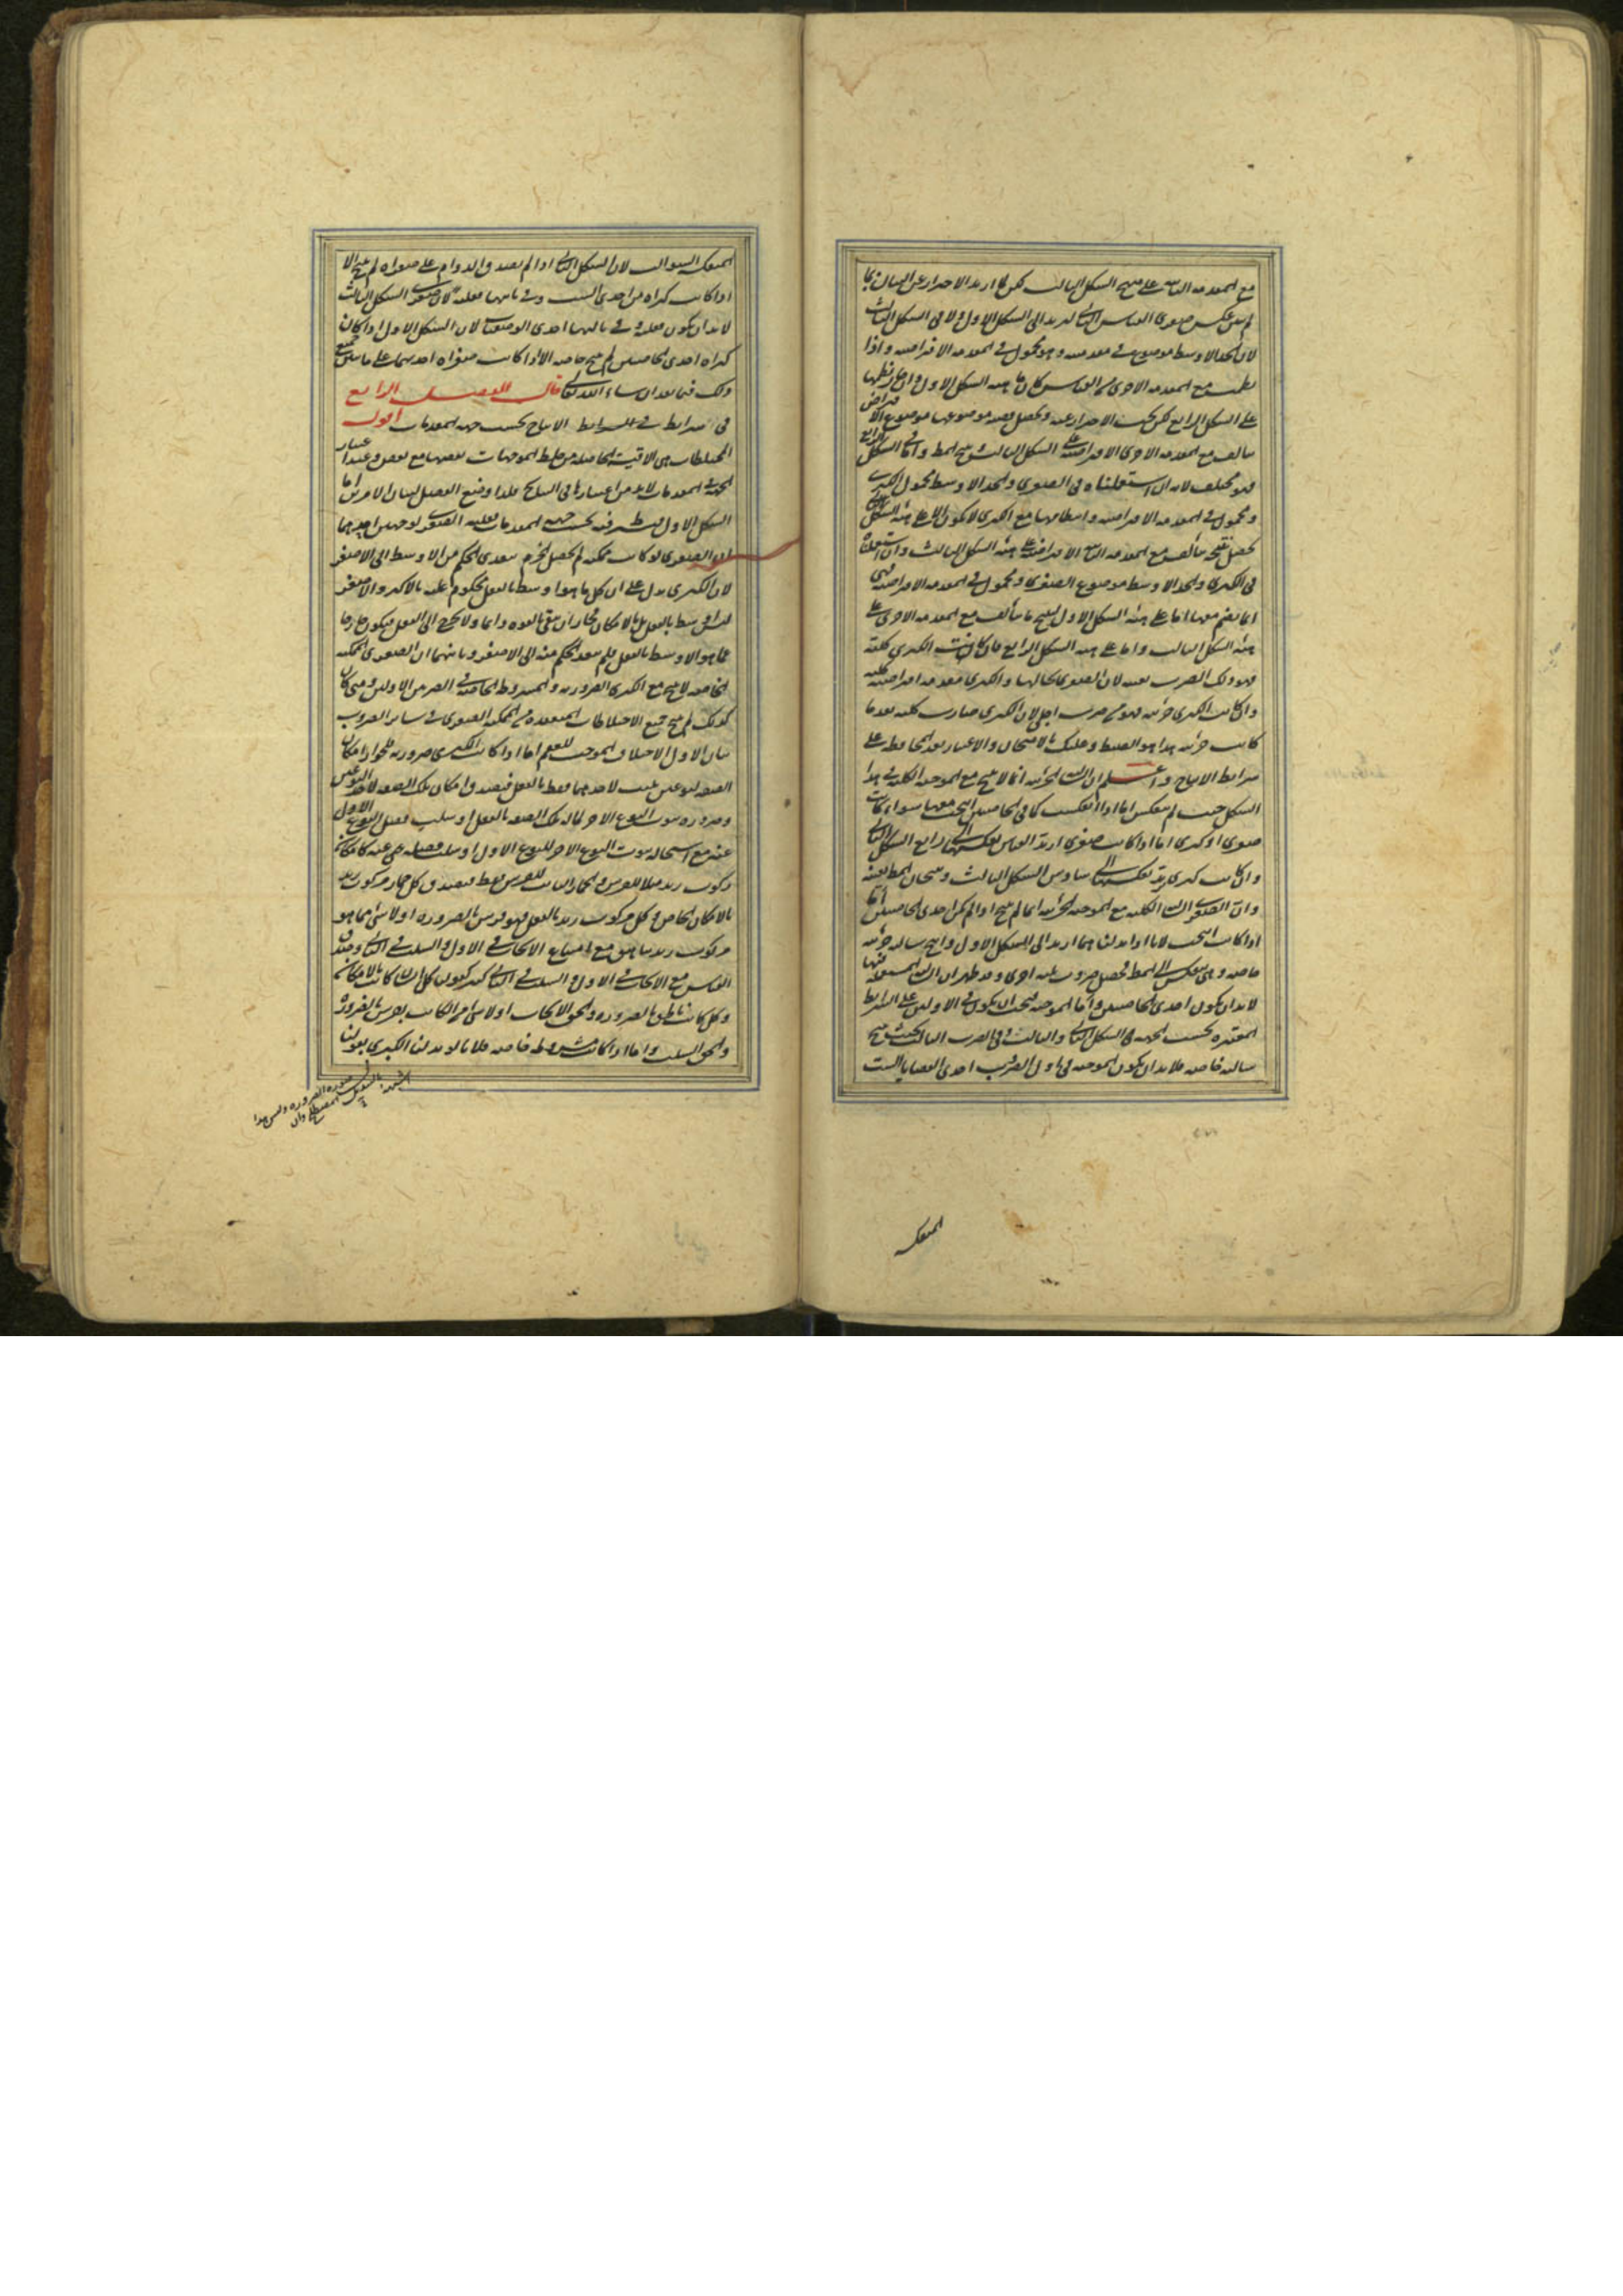 مع المقدمة الثانية على منهج الشكل الثالث لكن لما اريد الاحتراز عن البيان بما
لم يتبين عكس صغرى القياس الثاني ليرتد الى الشكل الاول ولا في الشكل الثالث
لان الحد الاوسط موضوع في مقدمتيه وهو محمول في المقدمة الافتراضية واذا
نظمت مع المقدمة الاخرى من القياس كان على هيئة الشكل الاول وان جاز نظمها
على الشكل الرابع لكن يجب الاحتراز عنه ويحصل قضية موضوعها موضوع الافتراض
يتألف مع المقدمة الاخرى الافتراضية على الشكل الثالث ينتج المط واما في الشكل الرابع
فهو مختلف لانه ان استعملناه في الصغرى والحد الاوسط محمول الكبرى
ومحمول في المقدمة الافتراضية وانتظامها مع الكبرى لا يكون الا على هيئة الشكل الثاني
تحصل نتيجة تتألف مع المقدمة الثانية الافتراضية على هيئة الشكل الثالث وان استعملناه
في الكبرى والحد الاوسط موضوع الصغرى ومحمول في المقدمة الافتراضية فهي
انما ينضم معها اما على هيئة الشكل الاول لينتج ما يتألف مع المقدمة الاخرى على
هيئة الشكل الثالث واما على هيئة الشكل الرابع فان كانت الكبرى كلية
فهو ذلك الضرب بعينه لان الصغرى بحالها والكبرى مقدمة افتراضية كلية
وان كانت الكبرى جزئية فهو من ضرب اجلى لان الكبرى صارت كلية بعد ما
كانت جزئية هذا هو الضبط وعليك بالامتحان والاعتبار بعد المحافظة على
شرائط الانتاج واعلم ان السالبة الجزئية انما لا ينتج مع الموجبة الكلية في هذا
الشكل حيث لم ينعكس اما اذا انعكست كما في الخاصيتين انتجت معها سواء كانت
صغرى او كبرى اما اذا كانت صغرى ارتد القياس بعكسها الى رابع الشكل الثاني
وان كانت كبرى يرتد بعكسها الى سادس الشكل الثالث وينتجان المط بعينه
وان الصغرى السالبة الكلية مع الموجبة الجزئية انما لم ينتج اذا لم يكن احدى الخاصيتين اما
اذا كانت انتجت لانا اذا بدلناهما ارتد الى الشكل الاول وانتج سالبة جزئية
خاصة وهي ينعكس الى المط فحصل ضروب ثلثة اخرى وقد ظهر ان السالبة المستعملة فيها
لا بد ان يكون احدى الخاصيتين واما الموجبة فيجب ان يكون في الاولين على الشرائط
المعتبرة بحسب الجهة في الشكل الثاني والثالث وفي الضرب الثالث بحيث ينتج
سالبة خاصة فلا بد ان يكون الموجبة في اول الضروب احدى القضايا الست
المنعكسة
المنعكسة السوالب لان الشكل الثاني اذا لم يصدق الدوام على صغراه لم ينتج الا
اذا كانت كبراه من احدى الست وفي ثانيها فعلية لان صغرى الشكل الثالث
لا بد ان يكون فعلية وفي ثالثها احدى الوصفيات لان الشكل الاول اذا كان
كبراه احدى الخاصيتين لم ينتج خاصة الا اذا كانت صغراه احديهما على ما يتبين جميع
ذلك فيما بعد ان شاء الله تعالى قال الفصل الرابع
في شرائط الانتاج بحسب جهة المقدمات اقول
المختلطات هي الاقيسة الحاصلة من خلط الموجهات بعضها مع بعض وعند اعتبار
الجهة في المقدمات لا بد من اعتبارها في النتائج فلذا وضع الفصل لبيان الامرين اما
الشكل الاول فشرطه بحسب جهة المقدمات فعلية الصغرى لوجهين احدهما
ان الصغرى لو كانت ممكنة لم يحصل الجزم بتعدي الحكم من الاوسط الى الاصغر
لان الكبرى يدل على ان كل ما هو اوسط بالفعل محكوم عليه بالاكبر والاصغر
ليس اوسط بالفعل بل بالامكان فجاز ان يبقى بالقوة دائما ولا يخرج الى الفعل فيكون خارجا
عما هو الاوسط بالفعل فلم يتعد الحكم منه الى الاصغر وثانيهما ان الصغرى الممكنة
الخاصة لا ينتج مع الكبرى الضرورية والمشروطة الخاصة في الضربين الاولين ومتى كان
كذلك لم ينتج جميع الاختلاطات المنعقدة من الممكنة الصغرى في سائر الضروب
بيان الاول الاختلاف الموجب للعقم اما اذا كانت الكبرى ضرورية فلجواز امكان
الصفة لنوعين تثبت لاحدهما فقط بالفعل فيصدق امكان تلك الصفة لاحد النوعين
وضرورة ثبوت النوع الاخر لما له تلك الصفة بالفعل او سلب فصل النوع الاول
عنه مع استحالة ثبوت النوع الاخر للنوع الاول او سلب فصله عنه كامكان
ركوب زيد مثلا للفرس والحمار الثابت للفرس فقط فيصدق كل حمار مركوب زيد
بالامكان الخاص وكل مركوب زيد بالفعل فهو فرس بالضرورة او لا شيء مما هو
مركوب زيد بناهق مع امتناع الايجاب في الاول والسلب في الثاني وصدق
القياس مع الايجاب في الاول والسلب في الثاني كثير كقولنا كل انسان كاتب بالامكان
وكل كاتب ناطق بالضرورة والحق الايجاب او لا شيء من الكاتب بفرس بالضرورة
والحق السلب واما اذا كانت مشروطة خاصة فلانا لو بدلنا الكبرى بقولنا